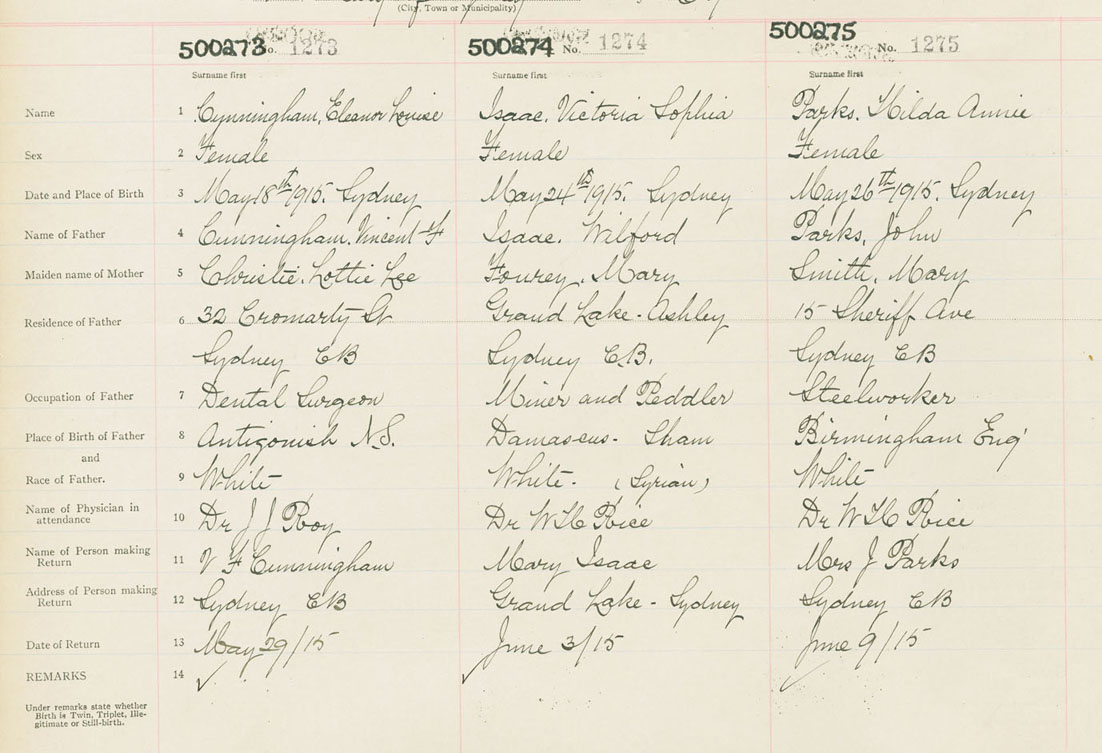 (City, Town or Municipality)
500273 No. 1273 500274 No. 1274 500275 No. 1275
Surname first Surname first Surname first
Name 1 Cunningham, Eleanor Louise Isaac, Victoria Sophia Parks, Hilda Annie
Sex 2 Female Female Female
Date and Place of Birth 3 May 18th 1915. Sydney May 24th 1915. Sydney May 26th 1915. Sydney
Name of Father 4 Cunningham, Vincent F Isaac, Wilford Parks, John
Maiden name of Mother 5 Christie, Lottie Lee Fourey, Mary Smith, Mary
Residence of Father 6 32 Cromarty St Grand Lake - Ashley 15 Sheriff Ave
Sydney CB Sydney C.B. Sydney CB
Occupation of Father 7 Dental Surgeon Miner and Peddler Steelworker
Place of Birth of Father 8 Antigonish N.S. Damascus - Sham Birmingham Eng
and
Race of Father. 9 White White - (Syrian) White
Name of Physician in attendance 10 Dr J J Roy Dr W H Rice Dr W H Rice
Name of Person making Return 11 V F Cunningham Mary Isaac Mrs J Parks
Address of Person making Return 12 Sydney CB Grand Lake - Sydney Sydney CB
Date of Return 13 May 29/15 June 3/15 June 9/15
REMARKS 14
Under remarks state whether
Birth is Twin, Triplet, Ille-
gitimate or Still-birth.